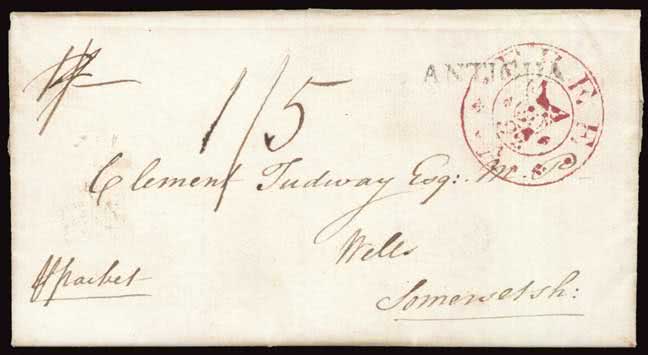 ANTIGUA
FREE
1/5
Clement Tudway Esq: M.P.
Wells
Somersetsh:
packet